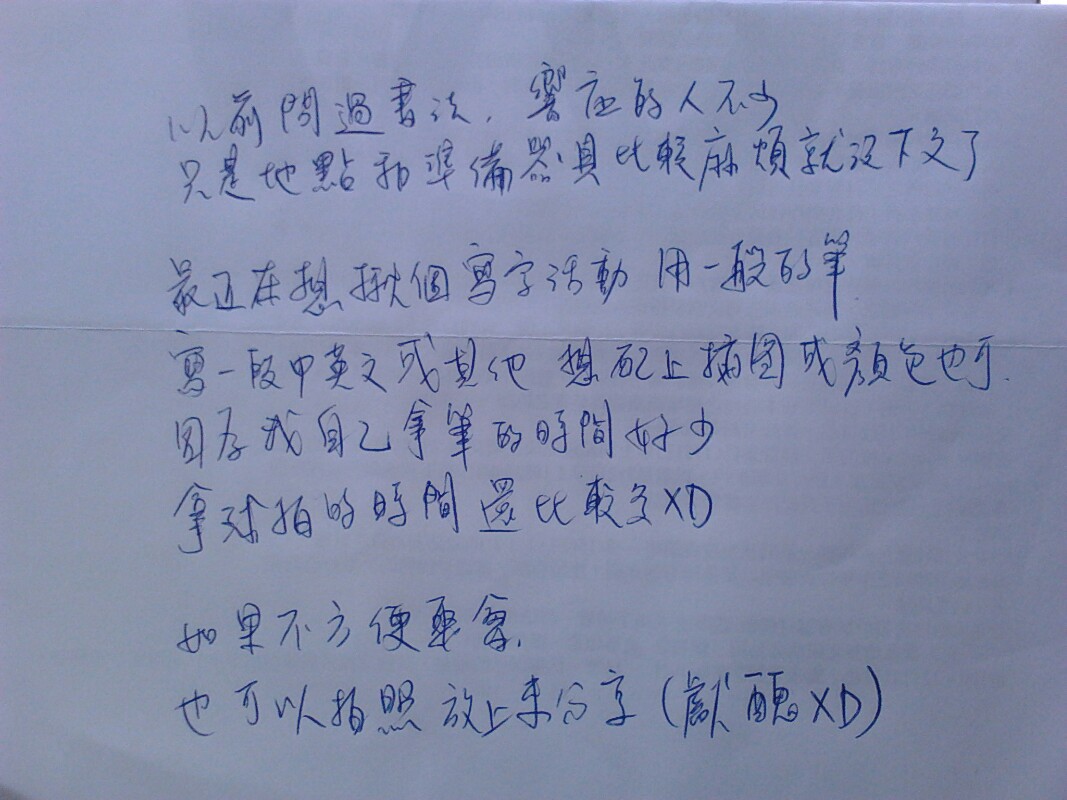 以前問過書法，響應的人不少
只是地點和準備器具比較麻煩就沒下文了
最近在想揪個寫字活動 用一般的筆
寫一段中英文或其他 想配上插圖或顏色也可.
因為我自己拿筆的時間好少
拿球拍的時間還比較多XD
如果不方便聚會,
也可以拍照放上來分享(獻醜XD)